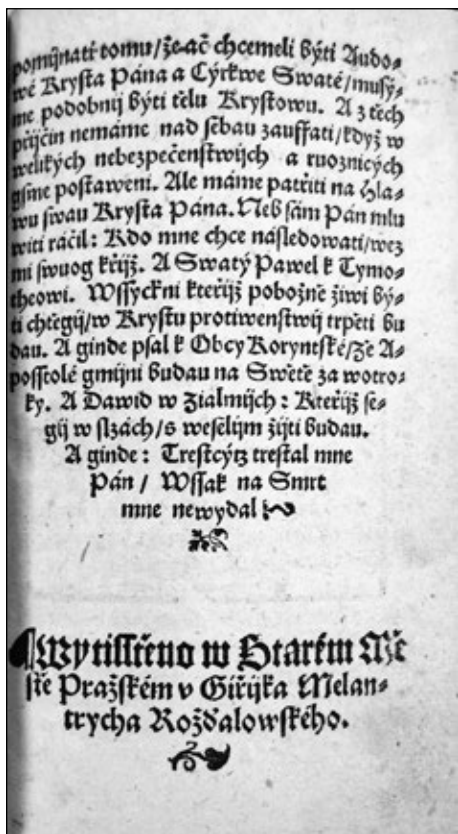 pomijnati tomu/že ač chcemeli býti Audo⸗
wé Krysta Pána a Cýrkwe Swaté/musý⸗
me podobnij býti tělu Krystowu. A z těch
přijčin nemáme nad sebau zauffati/když w
welikých nebezpečenstwijch a ruoznicých
gsme postaweni. Ale máme patřiti na Hla⸗
wu swau Krysta Pána. Neb sám Pán mlu
witi ráčil: Kdo mne chce následowati/wez
mi swuog křijž. A Swatý Pawel k Tymo⸗
theowi. Wssyckni kteřijž pobožně žiwi bý⸗
ti chtěgij/w Krystu protiwenstwij trpěti bu
dau. A ginde psal k Obcy Koryntské/Že A⸗
posstolé gmijni budau na Swětě za wotro⸗
ky. A Dawid w Žialmijch: Kteřijž se⸗
gij w slzách/s weselijm žijti budau.
A ginde: Tresťcytz trestal mne
Pán / Wssak na Smrt
mne newydal
Wytisstěno w Starém Mě
stě Pražském v Giřijka Melan⸗
trycha Rožďalowského.